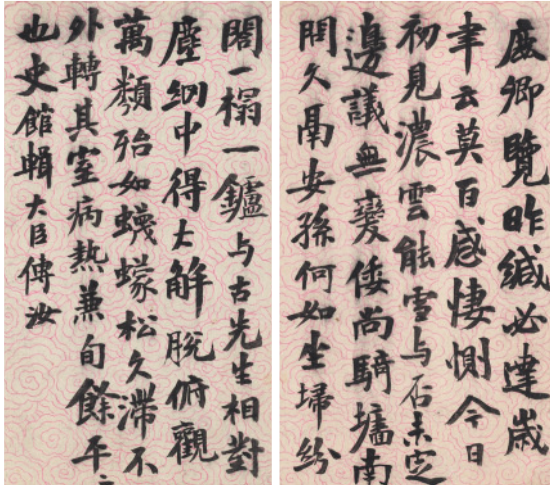 鹿卿覽昨緘必達歲
聿云莫百感悽惻今日
初見濃雲能雪与否未定
邊議無變倭尚騎墻南
問久鬲安孫何如坐埽紛
閤一榻一鑪与古先生相對
塵網中得大解脫俯觀
萬類殆如蠛蠓松久滯不
外轉其室病熱兼旬餘平
也史館輯大臣傳汝